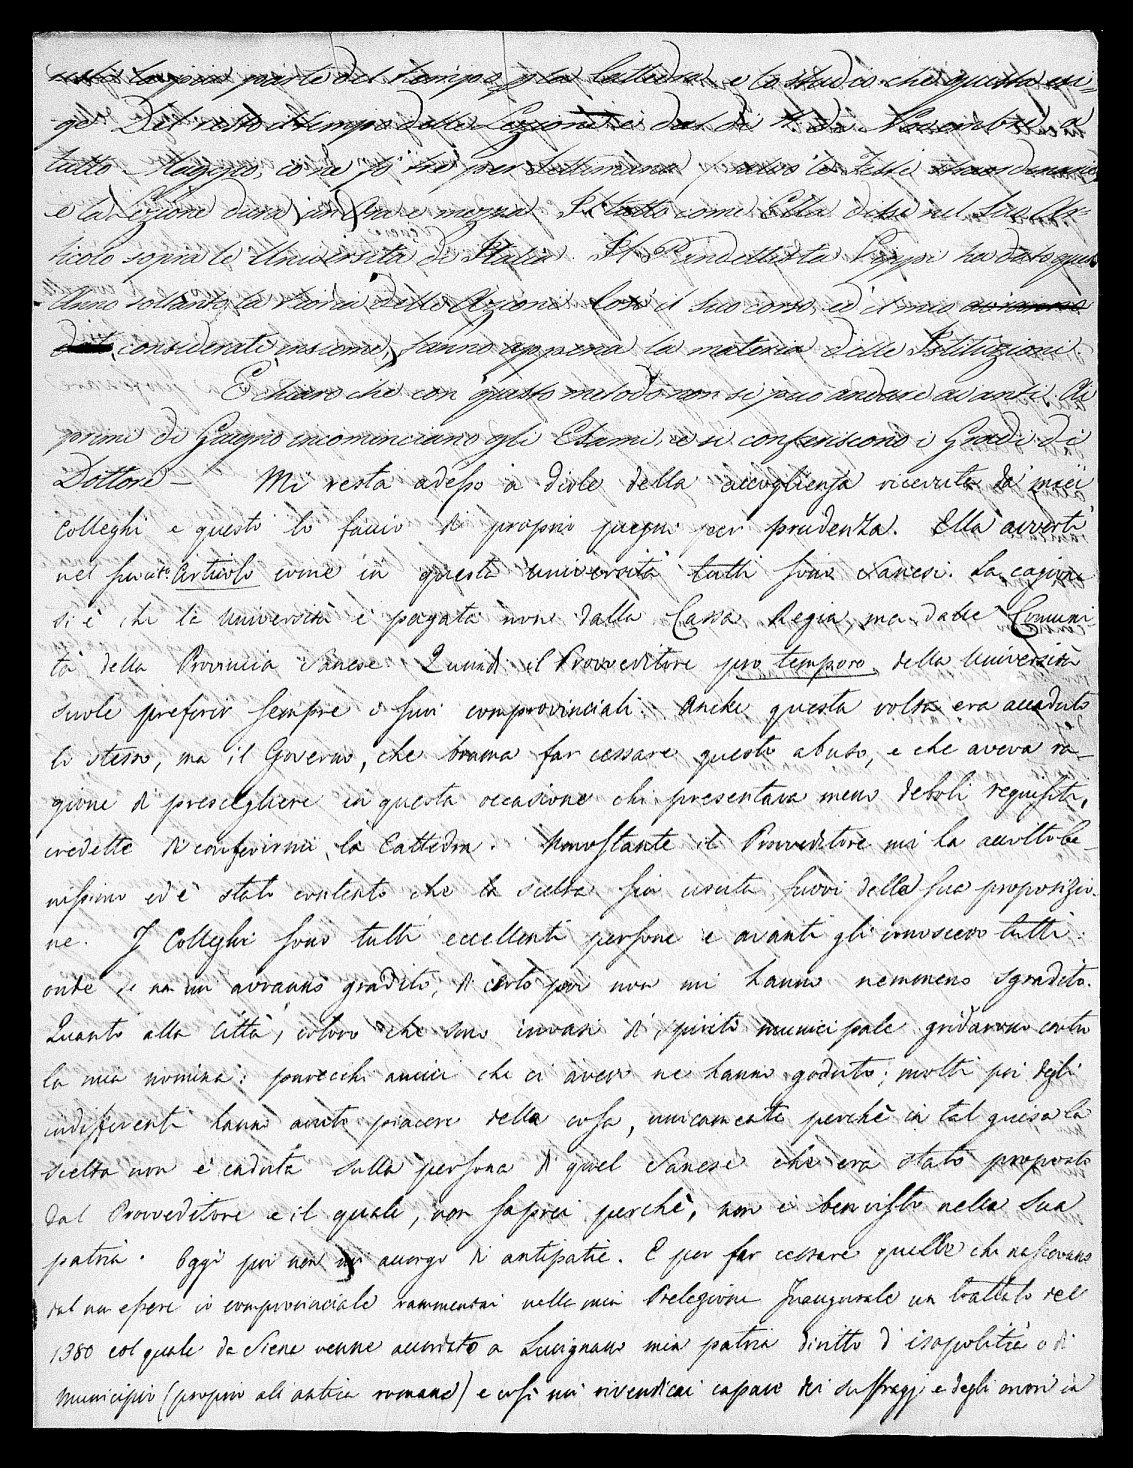 parte del tempo p la Cattedra e lo studio che questa esi-
ge. Del resto il tempo delle Lezioni è dal dì di Novembre a
tutto Maggio, co ne so' tre per Settimana
e la Lezione dura un Ora e mezza. Il tutto come Ella disse nel Suo Ar-
ticolo sopra le Università di Italia. Il Pandettista ha dato quest
Anno soltanto la teoria delle Azioni Così il Suo corso ed il mio
considerati insieme, fanno appena la materia delle Istituzioni.
È chiaro che con questo metodo non si può andare avanti. Ai
primi di Giugno incominciano gli Esami, e si conferiscono i Gradi di
Dottore — Mi resta adesso a dirle della accoglienza ricevuta da' miei
colleghi e questo lo faccio di proprio pugno per prudenza. Ella avvertì
nel suo Articolo come in questa Università tutti sono Sanesi. La cagione
si è che la Università è pagata non dalla Cassa Regia, ma dalle Comuni-
tà della Provincia Sanese Quindi il Provveditore pro tempore della Università
suole preferir sempre i suoi comprovinciali. Anche questa volta era accaduto
lo stesso, ma il Governo, che brama far cessare questo abuso, e che aveva ra-
gione di prescegliere in questa occasione chi presentava meno deboli requisiti,
credette di conferirmi la Cattedra. Nonostante il Provveditore mi ha accolto be-
nissimo ed è stato contento che la scelta sia uscita fuori della sua proposizio-
ne. I Colleghi sono tutti eccellenti persone e avanti gli conoscevo tutti:
onde se non mi avranno gradito, di certo poi non mi hanno nemmeno sgradito.
Quanto alla Città, coloro che sono invasi di spirito municipale gridarono contro
la mia nomina: parecchi amici che ci avevo ne hanno goduto; molti poi degli
indifferenti hanno avuto piacere della cosa, unicamente perchè in tal guisa la
scelta non è caduta sulla persona di quel Sanese che era stato proposto
dal Provveditore e il quale, non saprei perchè, non è ben visto nella sua
patria. Oggi poi non mi accorgo di antipatie. E per far cessare quelle che nascevano
dal non essere io comprovinciale rammentai nella mia Prelezione Inaugurale un trattato del
1380 col quale da Siena venne accordato a Lucignano mia patria diritto d'isopolitia o di
Municipio (proprio all'antica romana) e così mi rivendicai capace dei suffragj e degli onori in